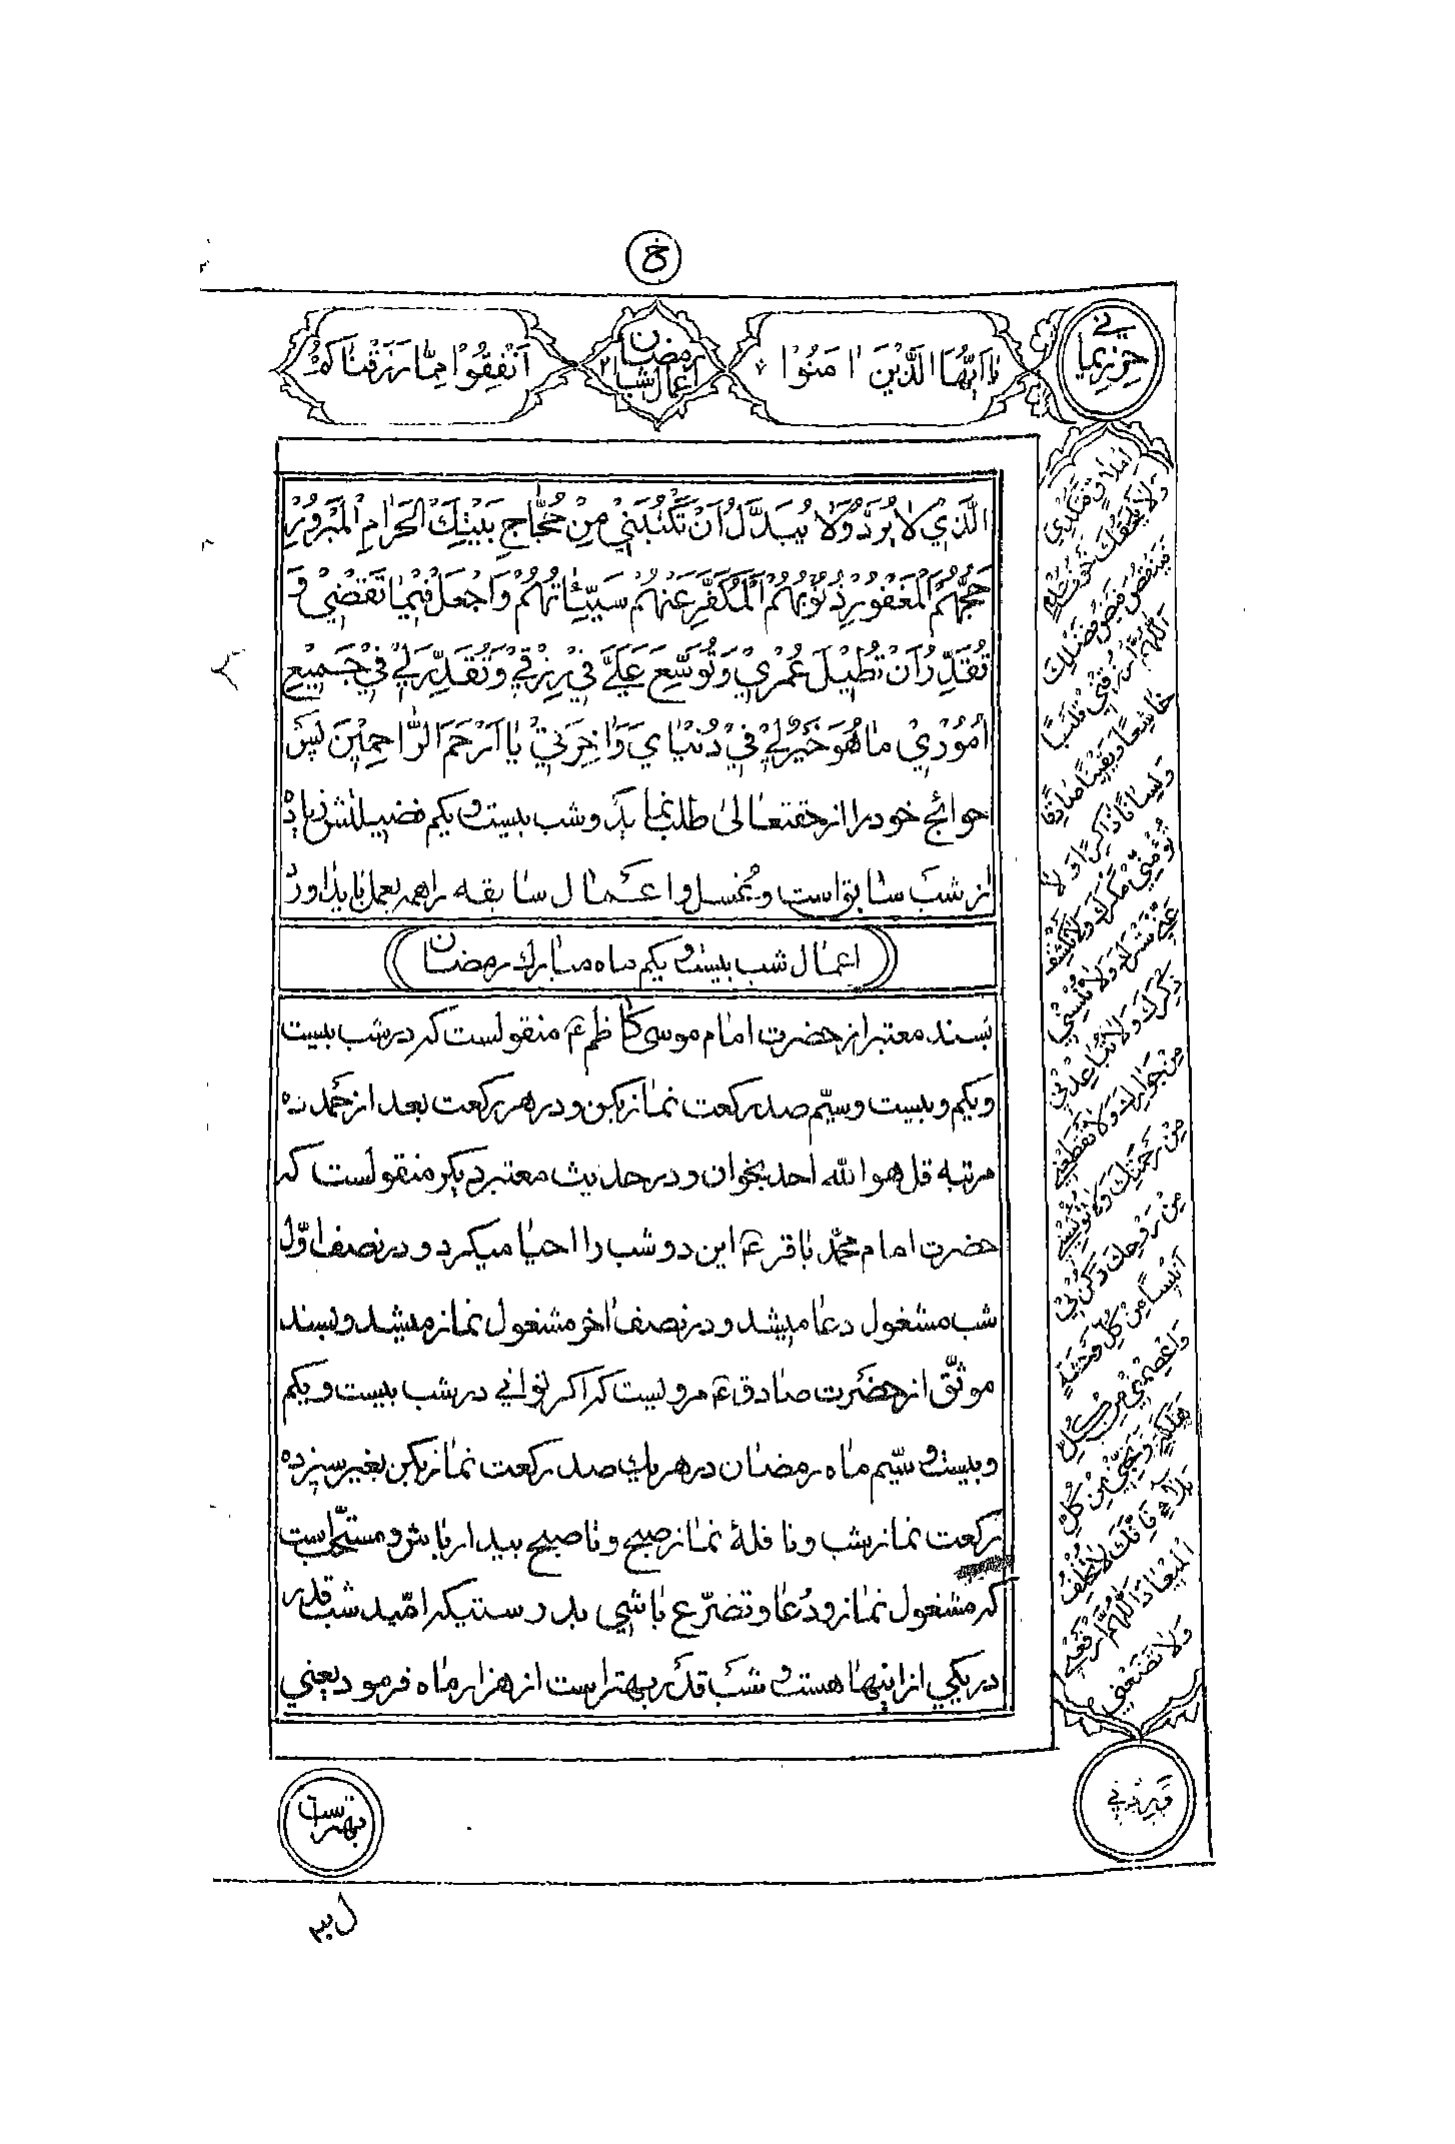 حرز یمانی
یٰا اَیُّهَا الَّذِیْنَ اٰمَنُوْا
اعمال شب ۲۱ رمضان
اَنْفِقُوْا مِمّٰا رَزَقْنٰاكُمْ
الَّذِيْ لاٰ يُرَدُّ وَلاٰ يُبَدَّلُ اَنْ تَكْتُبَنِيْ مِنْ حُجّٰاجِ بَيْتِكَ الْحَرٰامِ الْمَبْرُوْرِ
حَجُّهُمُ الْمَغْفُوْرِ ذُنُوْبُهُمُ الْمُكَفَّرِ عَنْهُمْ سَيِّئٰاتُهُمْ وَاجْعَلْ فِيْمٰا تَقْضِيْ وَ
تُقَدِّرُ اَنْ تُطِيْلَ عُمْرِيْ وَ تُوَسِّعَ عَلَيَّ فِيْ رِزْقِيْ وَ تُقَدِّرَ لِيْ فِيْ جَمِيْعِ
اُمُوْرِيْ مٰا هُوَ خَيْرٌ لِيْ فِيْ دُنْيٰايَ وَ اٰخِرَتِيْ يٰا اَرْحَمَ الرّٰاحِمِيْنَ پس
حوائج خود را از حقتعالیٰ طلب نماید و شب بیست و یکم فضیلتش زیاد
از شب سابق است و غسل و اعمال سابقه را همه بعمل باید اورد
اعمال شب بیست و یکم ماه مبارك رمضان
بسند معتبر از حضرت امام موسی کاظم ع منقولست که در شب بیست
و یکم و بیست و سیّم صد رکعت نماز بکن و در هر رکعت بعد از حمد ده
مرتبه قل هو الله احد بخوان و در حدیث معتبر دیکر منقولست که
حضرت امام محمّد باقر ع این دو شب را احیا میکرد و در نصف اوّل
شب مشغول دعا میشد و در نصف اخر مشغول نماز میشد و بسند
موثّق از حضرت صادق ع مرویست که اکر توانی در شب بیست و یکم
و بیست و سیّم ماه رمضان در هر یك صد رکعت نماز بکن بغیر سیزده
رکعت نماز شب و نافلۀ نماز صبح و تا صبح بیدار باش و مستحبّ است
که مشغول نماز و دُعا و تضرّع باشی بدرستیکه امّید شب قدر
در یکی از اینها هست و شب قدر بهتر است از هزار ماه فرمود یعنی
فَيَنْقُصُ فَيْضُ فَضْلِكَ
اَللّٰهُمَّ ارْزُقْنِيْ قَلْبًا
خٰاشِعًا وَ يَقِيْنًا صٰادِقًا
وَ لِسٰانًا ذٰاكِرًا وَ لاٰ
تُؤْمِنِّيْ مَكْرَكَ وَ لاٰ تَكْشِفْ
عَنِّيْ سِتْرَكَ وَ لاٰ تُنْسِنِيْ
ذِكْرَكَ وَ لاٰ تُبٰاعِدْنِيْ
مِنْ جِوٰارِكَ وَ لاٰ تَقْطَعْنِيْ
مِنْ رَحْمَتِكَ وَ لاٰ تُؤْيِسْنِيْ
مِنْ رَوْحِكَ وَ كُنْ لِيْ
اَنِيْسًا مِنْ كُلِّ وَحْشَةٍ
وَاعْصِمْنِيْ مِنْ كُلِّ
هَلَكَةٍ وَ نَجِّنِيْ مِنْ كُلِّ
بَلاٰءٍ فَاِنَّكَ لاٰ تُخْلِفُ
الْمِيْعٰادَ اَللّٰهُمَّ ارْفَعْنِيْ
وَ لاٰ تَضَعْنِيْ
وَ زِدْنِيْ
بهتر است